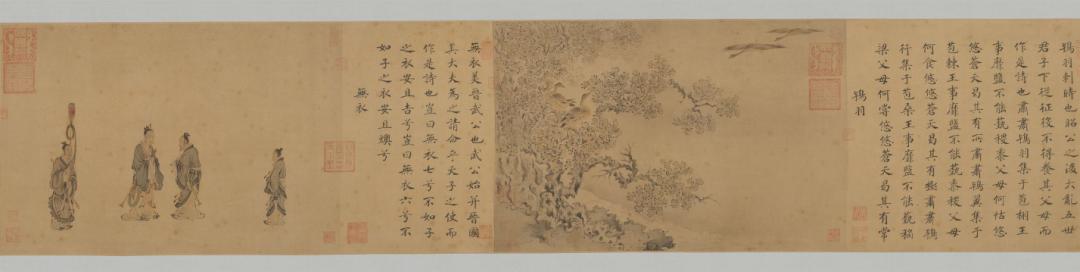 鴇羽刺時也昭公之後大亂五世
君子下從征役不得養其父母而
作是詩也肅肅鴇羽集于苞栩王
事靡盬不能蓺稷黍父母何怙悠
悠蒼天曷其有所肅肅鴇翼集于
苞棘王事靡盬不能蓺黍稷父母
何食悠悠蒼天曷其有極肅肅鴇
行集于苞桑王事靡盬不能蓺稻
粱父母何嘗悠悠蒼天曷其有常
鴇羽
無衣美晉武公也武公始并晉國
其大夫為之請命乎天子之使而
作是詩也豈曰無衣七兮不如子
之衣安且吉兮豈曰無衣六兮不
如子之衣安且燠兮
無衣